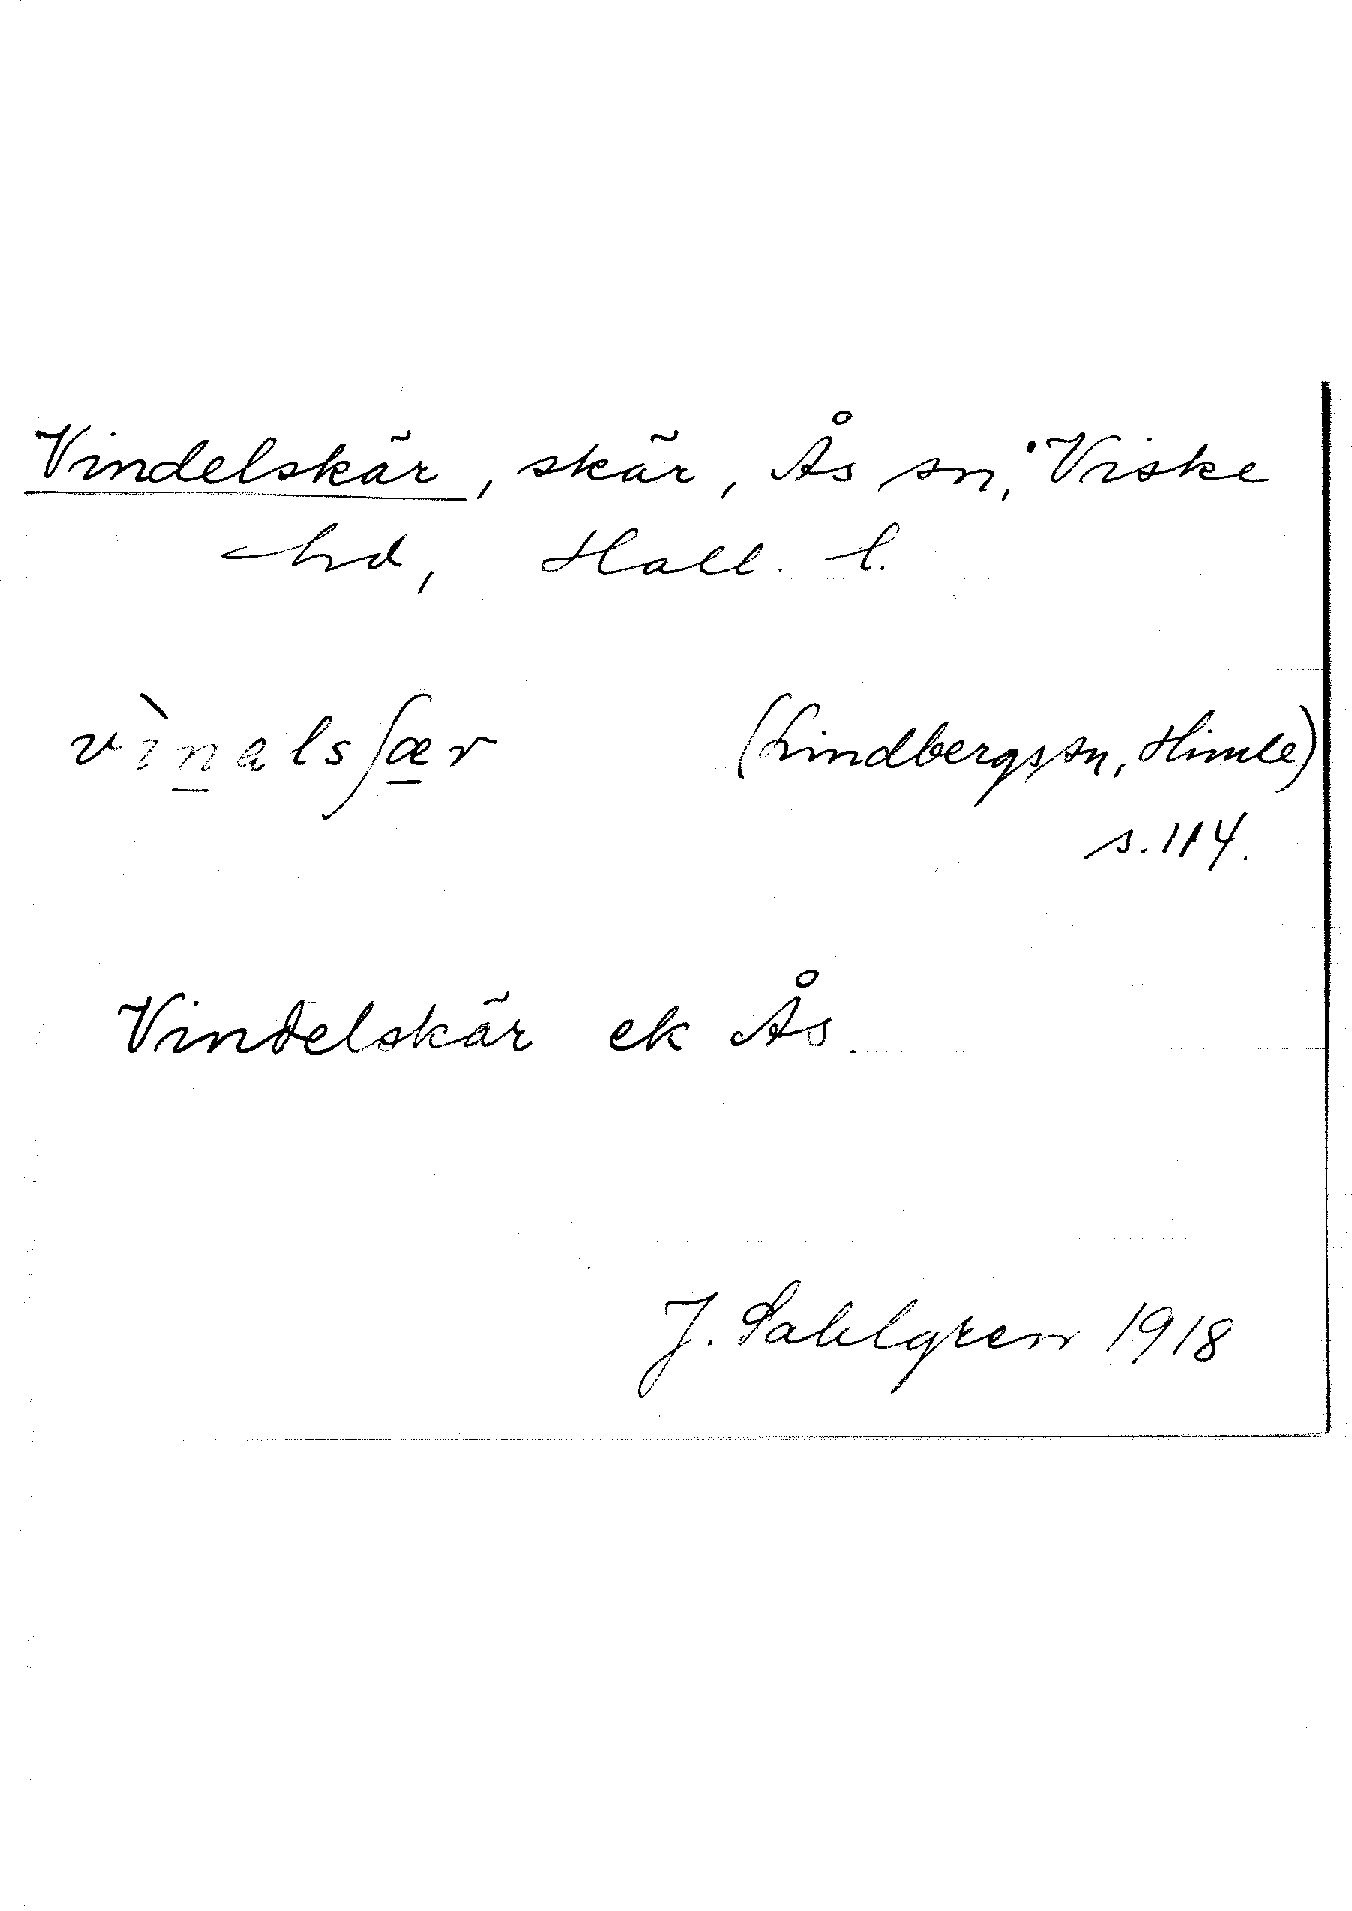 Vindelskär, skär, Ås sn, Viske
hd, Hall. l.
vìnalsʃær (Lindbergson, Himle)
s. 114.
Vindelskär ek Ås.
J. Sahlgren 1918